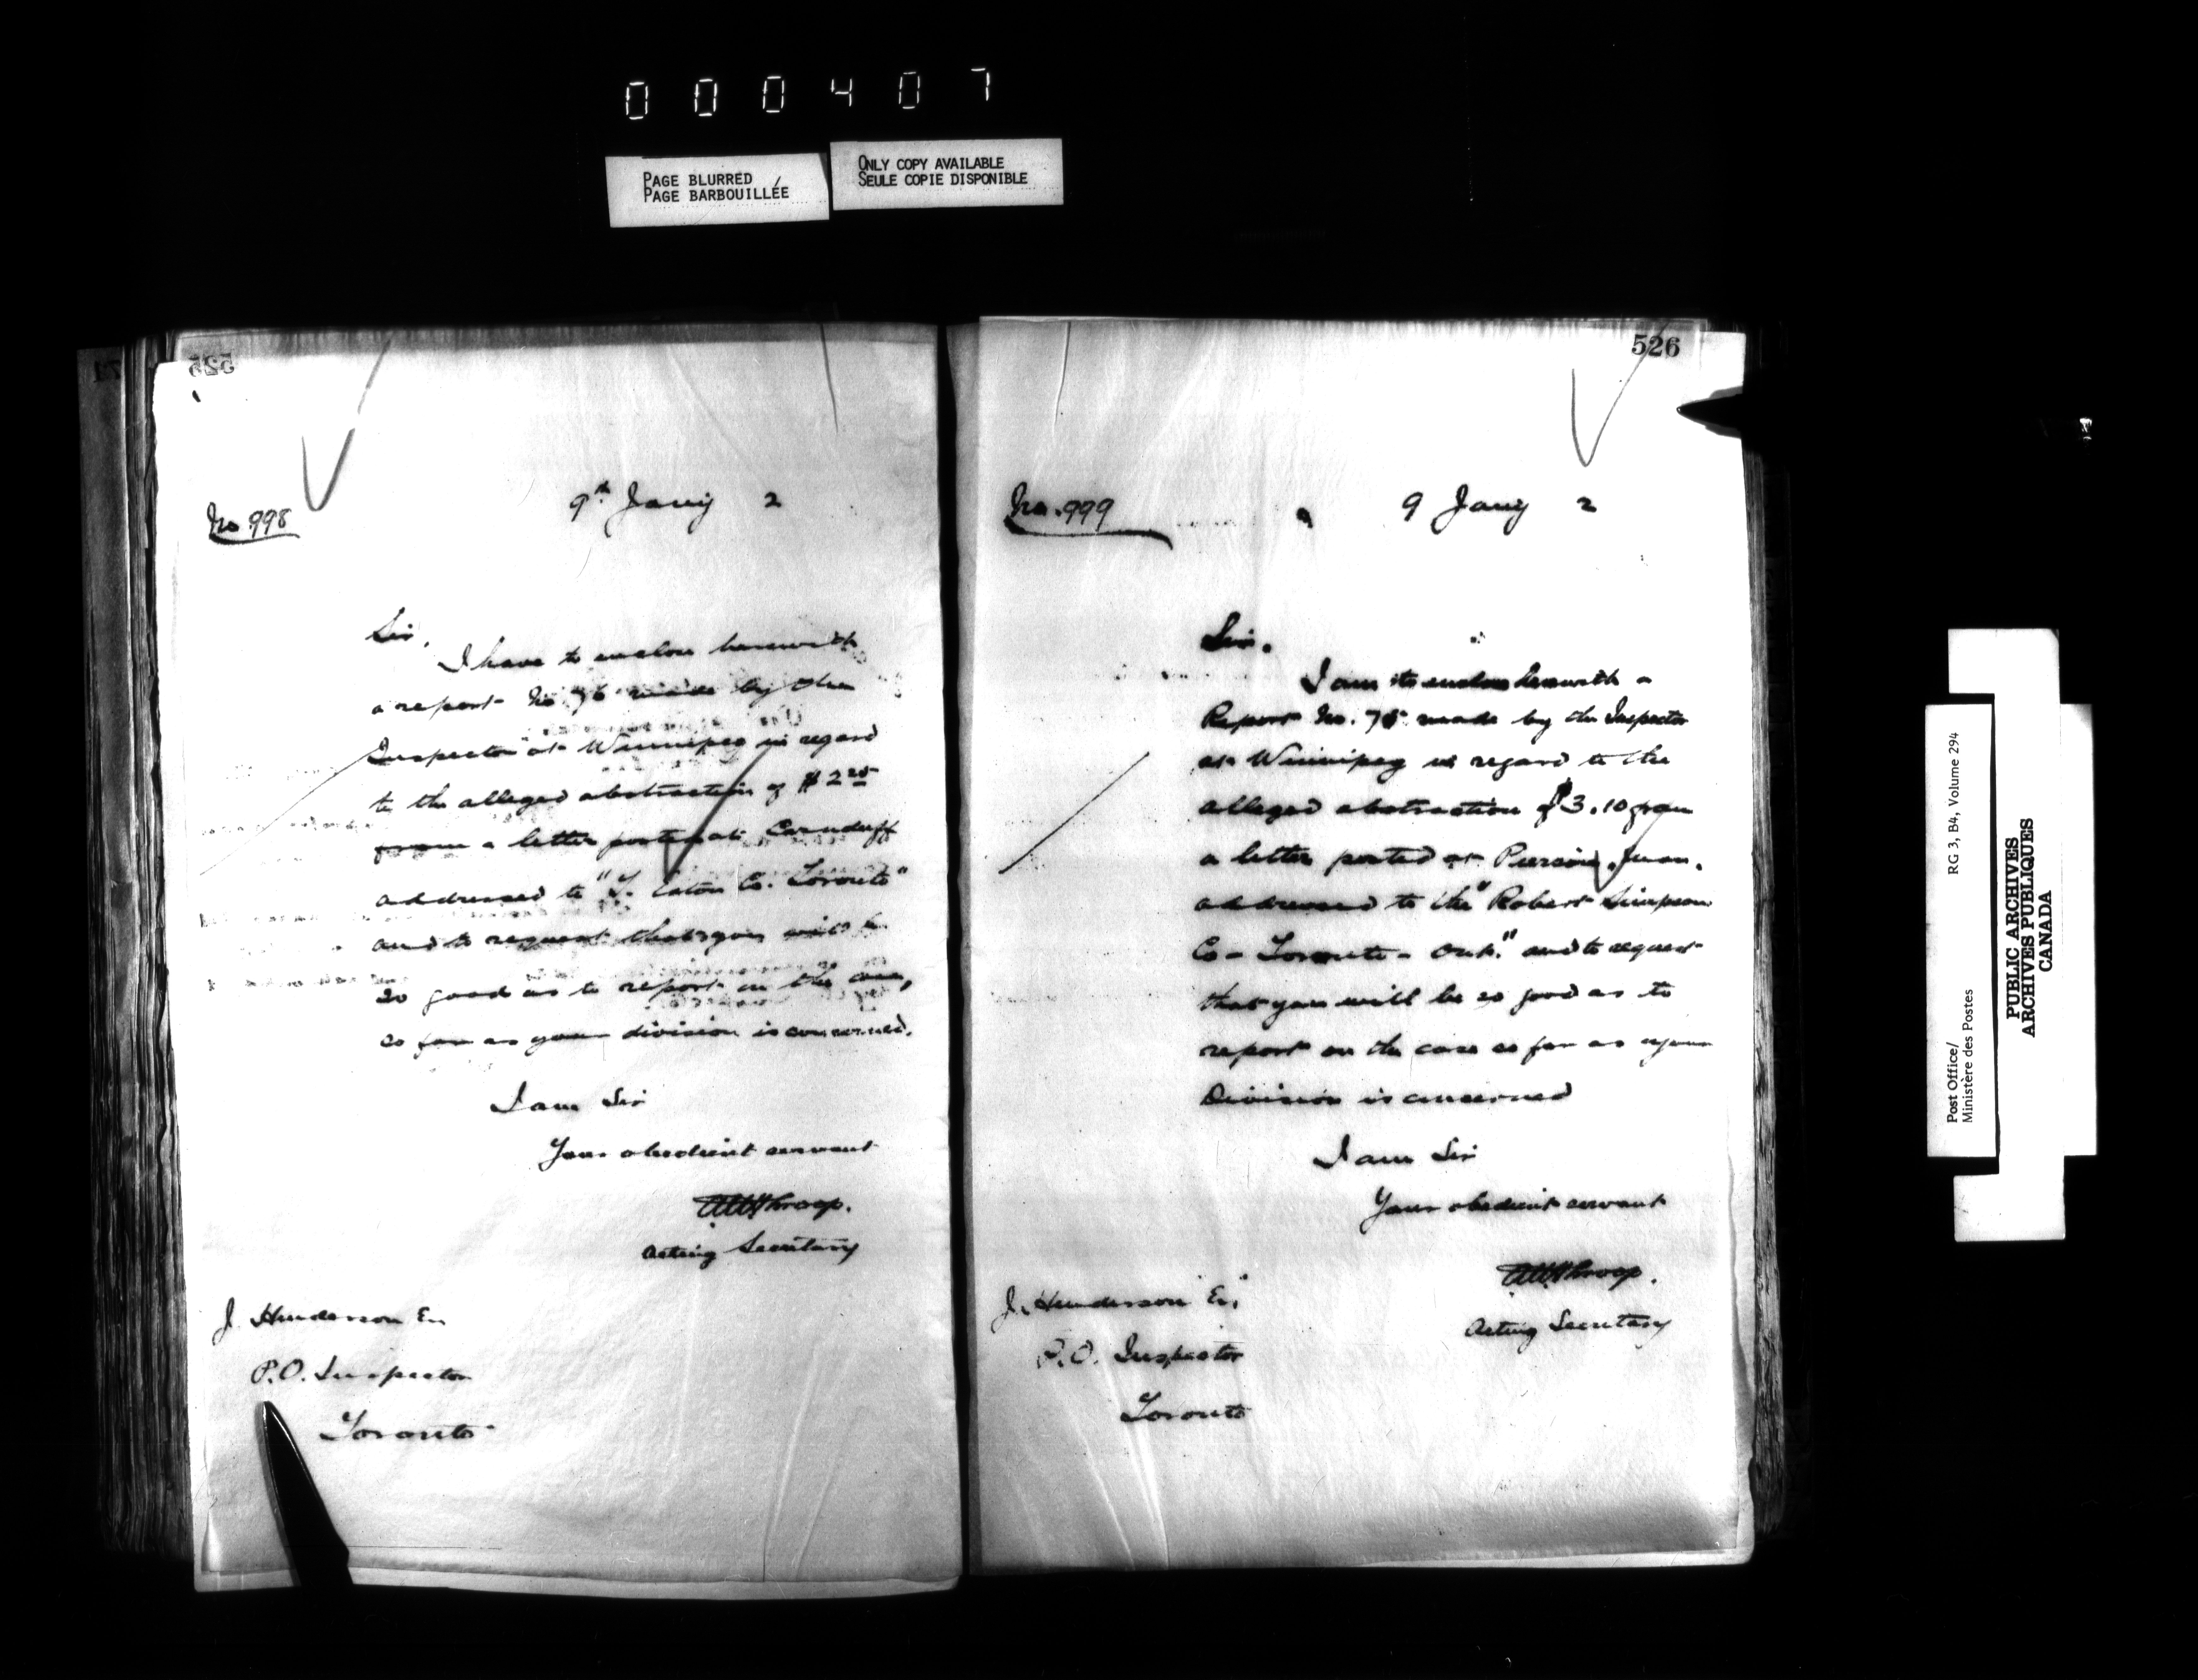 000407
PAGE BLURRED
PAGE BARBOUILLÉE
ONLY COPY AVAILABLE
SEULE COPIE DISPONIBLE
525
No 998
9th Jany 2
Sir,
I have to enclose herewith
a report No 76 made by the
Inspector at Winnipeg in regard
to the alleged abstraction of $2 25
from a letter posted at Carnduff
addressed to "T. Eaton Co. Toronto"
and to request that you will be
so good as to report on the case,
so far as your division is concerned.
I am Sir
Your obedient servant
Throop.
Acting Secretary
J. Henderson
P.O. Inspector
Toronto
526
No. 999
9 Jany 2
Sir.
I am to enclose herewith a
Report No. 75 made by the Inspector
at Winnipeg in regard to the
alleged abstraction of $3.10 from
a letter posted at Pierson, Man.
addressed to the "Robert Simpson
Co - Toronto - Ont." and to request
that you will be so good as to
report on the case so far as your
Division is concerned
I am Sir
Your obedient servant
Throop.
Acting Secretary
J. Henderson
P.O. Inspector
Toronto
Post Office/
Ministère des Postes
RG 3, B4, Volume 294
PUBLIC ARCHIVES
ARCHIVES PUBLIQUES
CANADA